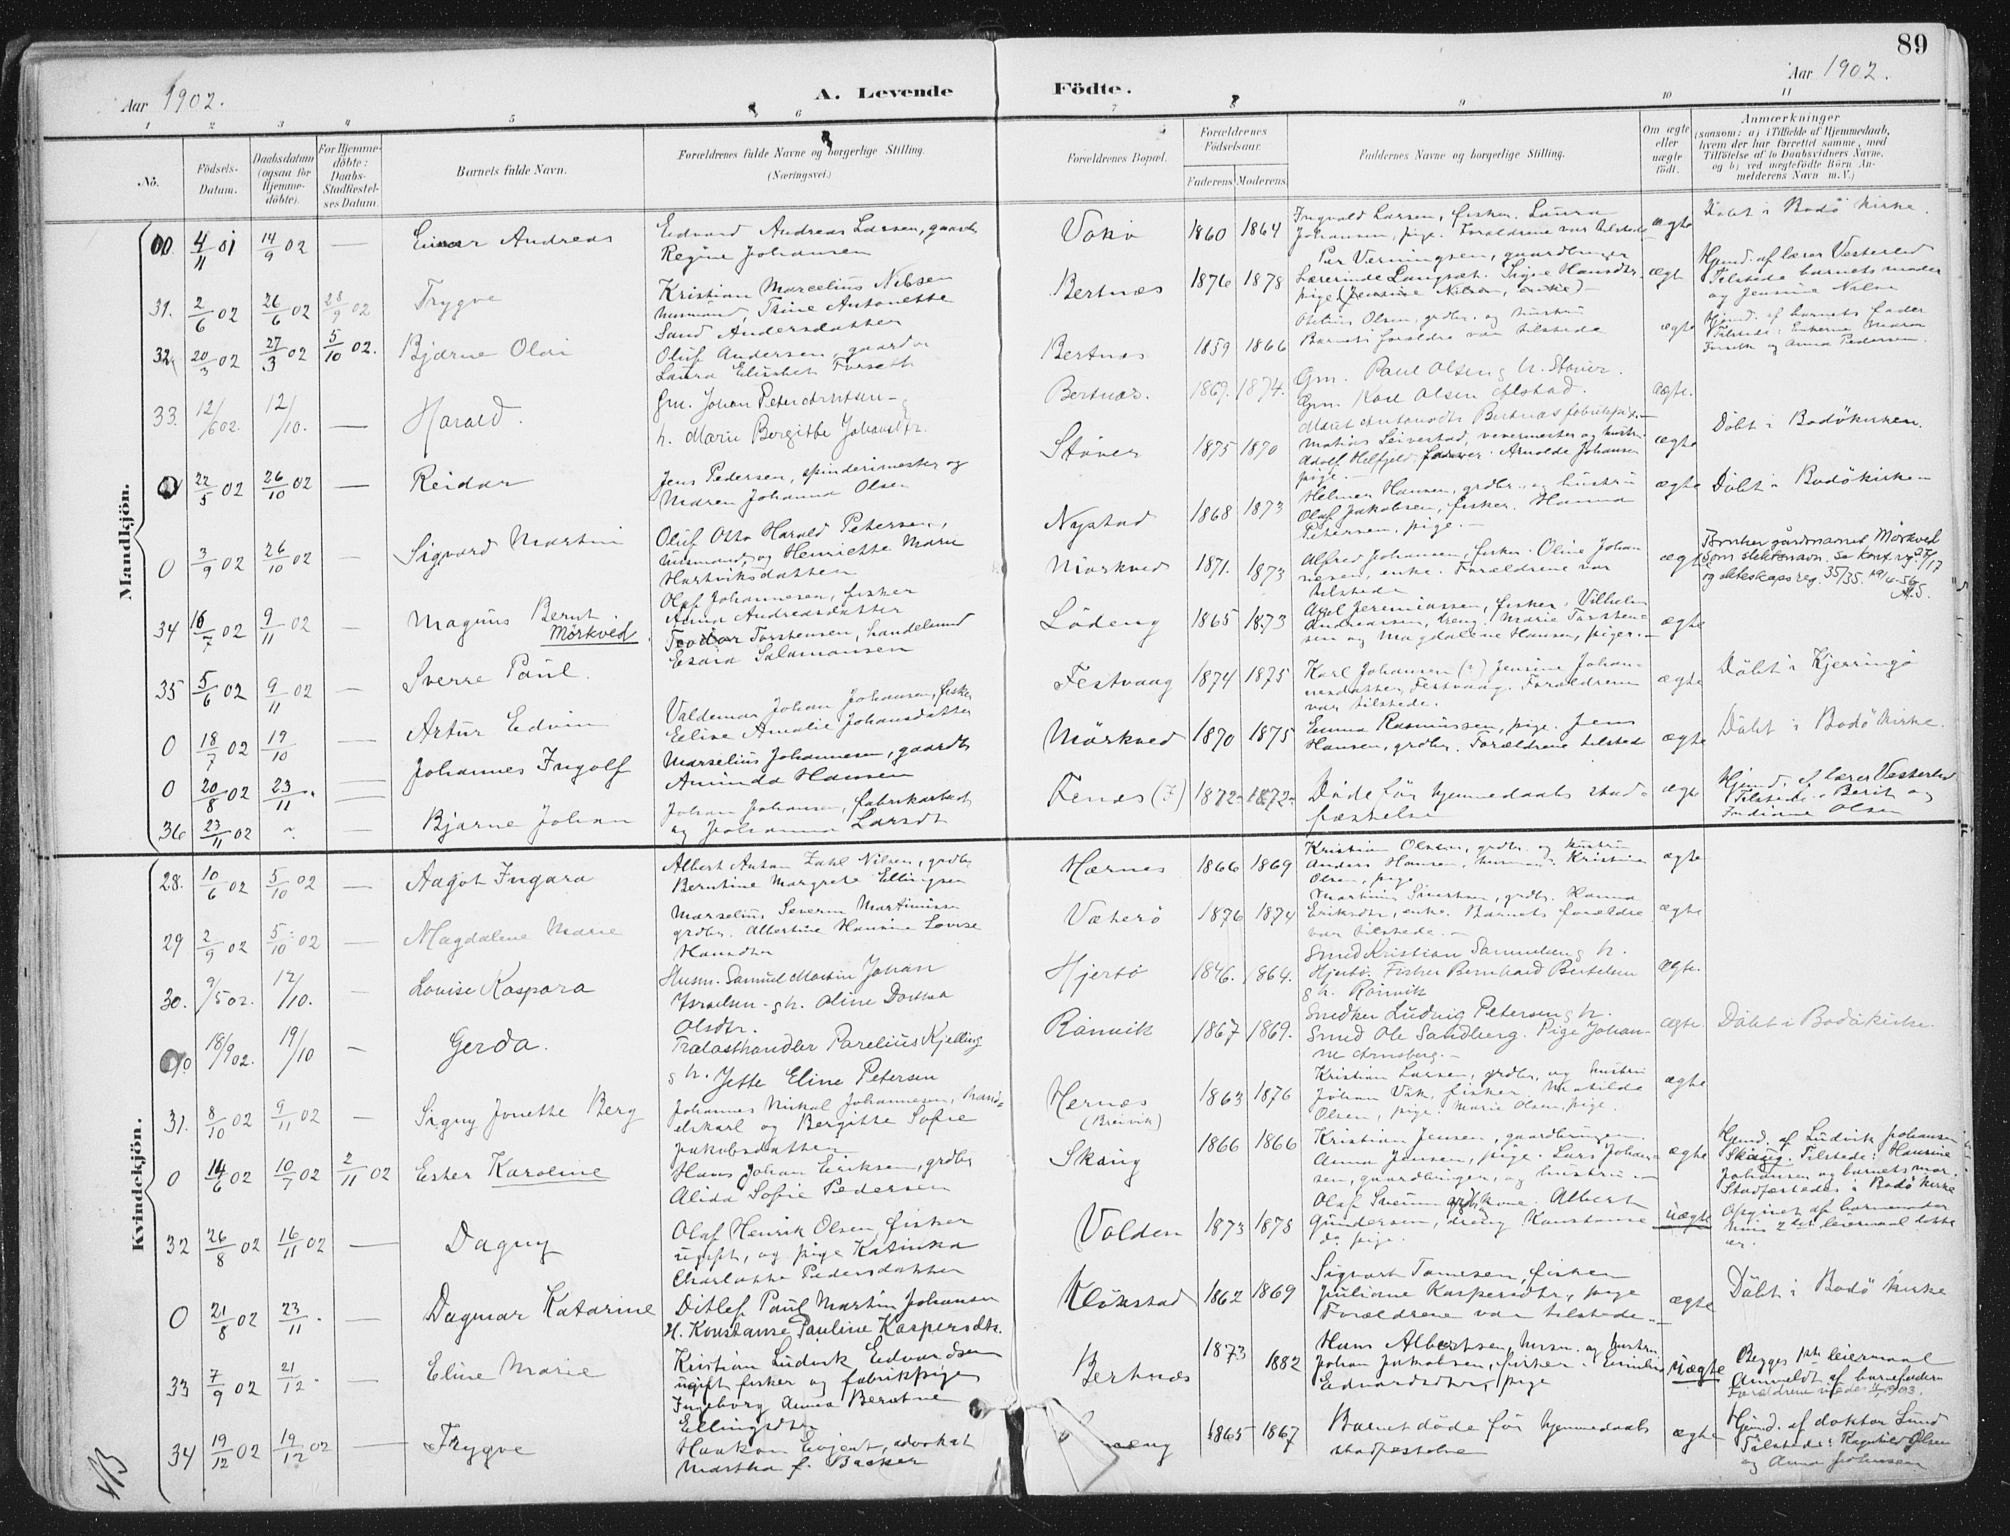 89
Aar 1902.
A. Levende Födte.
Aar 1902.
1 2 3 4 5 6 7 8 9 10 11
No.
Födsels-Datum.
Daabsdatum (ogsaa for Hjemme-döbte).
For Hjemme-döbte: Daabs-Stadfæstel-ses Datum.
Barnets fulde Navn.
Forældrenes fulde Navne og borgerlige Stilling. (Næringsvei.)
Forældrenes Bopæl.
Forældrenes Födselsaar.
Faderens. Moderens.
Faddernes Navne og borgerlige Stilling.
Om ægte eller uægte födt.
Anmærkninger
(saasom: a) i Tilfælde af Hjemmedaab, hvem der har forrettet samme, med Tilföielse af to Daabsvidners Navne, og b) ved uægtefödte Börn Anmelderens Navn m. V.)
Mandkjön.
4/11 01 14/9 02 — Einar Andreas
Edvard Andreas Larsen, gaardb.
Regine Johansen
1860 1864
Ingvald Larsen, fisker. Laura
Johansen, pige. Forældrene var tilstede
ægte
Döbt i Bodö kirke.
31. 2/6 02 26/6 02 28/9 02 Trygve
Kristian Marcelius Nilsen
husmand, Trine Antonette
Sand Andersdatter
Bertnæs 1876 1878
Lærerinde Langsæt. Signe Hansdtr.
pige (Jensine Nilsen, enke) —
ægt
Hjmd. af lærer Vesterlid
Tilstede barnets moder
og Jensine Nilsen
32. 20/3 02 27/3 02 5/10 02. Bjarne Olai
Oluf Andersen, gaardbr
Laura Elisabet Forseth
Bertnæs 1859 1866
Olsen, grdbr. og hustru
Barnets forældre var tilstede
ægte
Hjmd. af barnets fader
Tilstede: Enkerne Maren
Forseth og Anna Pedersen.
33. 12/6 02. 12/10. — Harald.
Gm. Johan Peter Arntsen — g
h. Marie Bergitte Johansdtr.
Bertnæs. 1869. 1874.
Gm. Paul Olsen g h. Stöver.
Gm. Karl Olsen Ølstad.
ægte.
22/5 02 26/10 02 — Reidar
Jens Pedersen, spinderimester og
Maren Johanna Olsen
Stöver 1875 1870
Matias Seivestad, vevermester og hustru
Adolf Helfjeld farver. Arnolda Johansen
pige.
ægte
Döbt i Bodökirken.
0 3/9 02 26/10 02 — Sigvard Martin
Oluf Otto Harald Petersen,
husmand, og Henriette Marie
Hartviksdatter
Nystad 1868 1873
Helmer Hansen, grdbr. og hustru
Olaf Jakobsen, fisker. Hanna
Petersen, pige. —
ægte
Döbt i Bodökirken
34 16/7 02 9/11 02 — Magnus Bernt
Mörkved
Olaf Johannesen, fisker
Anna Andreasdatter
Mörkved 1871. 1873
Alfred Johansen, fisker. Oline Johan-
nesen, enke. Forældrene var
tilstede
ægte
Bruker gårdsnavnet Mörkved
som slektsnavn. Se konf. reg. 27/17
og ekteskapsreg. 35/35. 19/6-56
A.S.
35 5/6 02 9/11 02 — Sverre Paul.
Teodor Torstensen, handelsmd
Esaia Salamonsen
Löding 1865 1873
Axel Jeremiassen, fisker, Vilhelm
Andreassen, dreng. Marie Torsten-
sen og Magdalene Hansen, piger. —
ægte
0 18/7 02 19/10 — Artur Edvin
Valdemar Johan Johansen, fisker
Elise Amalie Johansdatter
Festvaag 1874 1875
Karl Johansen (?) Jensine Johan-
nesdatter, Festvaag. Forældrene
var tilstede.
ægte
Döbt i Kjerringö
0 20/8 02 23/11. — Johannes Ingolf
Marselius Johannesen, gaardb
Aminda Hansen
Mörkved 1870 1875
Emma Rasmussen, pige. Jens
Hansen, grdbr. Forældrene tilstede
ægte
Döbt i Bodö kirke.
36 23/11 02 — Bjarne Johan
Johan Johansen, fabrikarbeid
og Johanna Larsdt
Fenes (?) 1872- 1872-
Döde för hjemmedaabs stad-
fæstelse
ægte
Hjmd. af lærer Vesterlid
Tilstede: Berit og
Indianne Olsen
Kvindekjön.
28. 10/6 02 5/10 02 — Aagot Ingara
Albert Anton Zahl Nilsen, grdbr
Berntine Margrete Ellingsen
Hærnes 1866 1869
Kristian Olsen, grdbr. og hustru
Anders Hansen, husmand. Kristine
Olsen, pige
ægte
29 2/9 02 5/10 02 — Magdalene Marie
Marselius Severin Martinussen
grdbr. Albertine Hansine Lovise
Hansdtr
Væterö 1876 1874
Martinus Sivertsen, grdbr. Hanna
Eriksdtr, enke. Barnets forældre
var tilstede. —
ægte
30. 9/5 02. 12/10. — Lovise Kaspara
Husm. Samuel Martin Johan
Israelsen - g h. Oline Dorthea
Olsdtr.
Hjertö 1846. 1864.
Smed Kristian Samuelsen g h.
Hjertö. Fisker Bernhard Bertelsen
g h. Rönvik
ægte.
18/9 02. 19/10 — Gerda.
Trælasthandler Parelius Kjelling
g h. Jette Eline Petersen
Rönvik 1867 1869.
Snedker Ludvig Petersen g h.
Smed Ole Sandberg. Pige Johan-
ne Arnsberg. —
ægte
Döbt i Bodökirke.
31. 8/10 02 9/11 02 — Signy Jonette Berg
Johannes Nickal Johannesen, hand-
elskarl og Bergitte Sofie
Jakobsdatter
Hernæs
(Breivik)
1863 1876
Kristian Larsen, grdbr, og hustru
Johan Vik, fisker, Matilde
Olsen, pige. Marie Olsen, pige.
ægte
0 14/6 02 10/7 02 2/11 02 Ester Karoline
Hans Johan Eriksen, grdbr
Alida Sofie Pedersen
Skaug 1866 1866
Kristian Jensen, gaardbruger.
Anna Jensen, pige. Lars Johan-
sen, gaardbruger, og hustru —
ægte
Hjmd. af Ludvik Johansen
Skaug. Tilstede: Hansine
Johansen og barnets mor.
Stadfæstedes i Bodö kirke
32 26/8 02 16/11 02 — Dagny
Olaf Henrik Olsen fisker
ugift, og pige Katinka
Charlotte Pedersdatter
Volden 1873 1875
Gundersen, dreng Konstanse
do. pige.
uægte
Opgivet af barnemoder
0 21/8 02 23/11. — Dagmar Katarine
Ditlef Paul Martin Johansen
H. Konstanse Pauline Kaspersdtr.
Klökstad 1862 1869
Sigvart Tomesen, fisker
Juliane Kaspersdtr, pige
Forældrene var tilstede. —
ægte
Döbt i Bodö kirke
33 7/9 02 21/12. — Eline Marie
Kristian Ludvik Edvardsen
ugift fisker og fabrikpige
Ingeborg Anna Berntine
Ellingsdtr
Bertnæs 1873 1882
Hans Albertsen, husm. og hustru
Johan Jakobsen, fisker.
Edvardsdtr, pige
uægte
Begges 1ste leiermaal
Anmeldt af barnefadern
34 19/12 02 19/12 02 — Trygve
Haakon Evjent, advokat
Martha f. Backer
1865 1867
Barnet döde för hjemmedaabs
stadfestelse
ægte
Hjmd. af doktor Lund
Tilstede: Ragnhild Olsen
og Anna Johansen